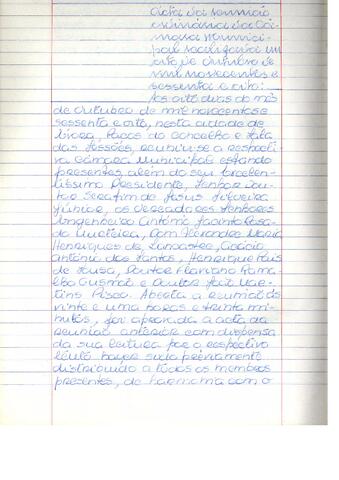 Acta da reunião
ordinária da Câ-
mara Municipal
pal realizada em
oito de outubro de
mil novecentos e
sessenta e oito:
Aos oito dias do mês
de outubro de mil novecentos e
sessenta e oito, nesta cidade de
Évora, Paços do Concelho e Sala
das Sessões, reuniu-se a respecti-
va Câmara Municipal estando
presentes, além do seu Excelen-
tíssimo Presidente, Senhor Dou-
tor Serafim de Jesus Silveira
Júnior, os vereadores Senhores
Engenheiro António Jacinto
da Dom Alexandre Maria
Henriques de Lancastre,
António dos Santos, Henrique
de Sousa, Doutor Floriano Rama-
lho Gusmão e Doutor Mar-
tins Pisco. Aberta a reunião às
vinte e uma horas e trinta mi-
nutos, foi aprovada a acta da
reunião anterior com dispensa
da sua leitura por o respectivo
texto haver sido previamente
distribuido a todos os membros
presentes, de harmonia com o